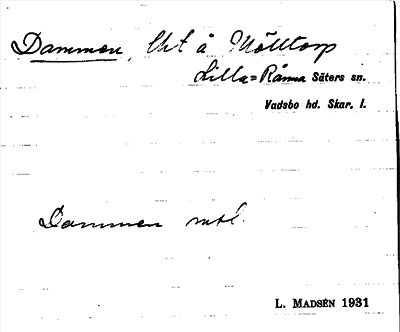 Dammen, Lht å Mölltorp
Lilla=Rånna Säters sn.
Vadsbo hd. Skar. l.
Dammen
L. MADSÉN 1931